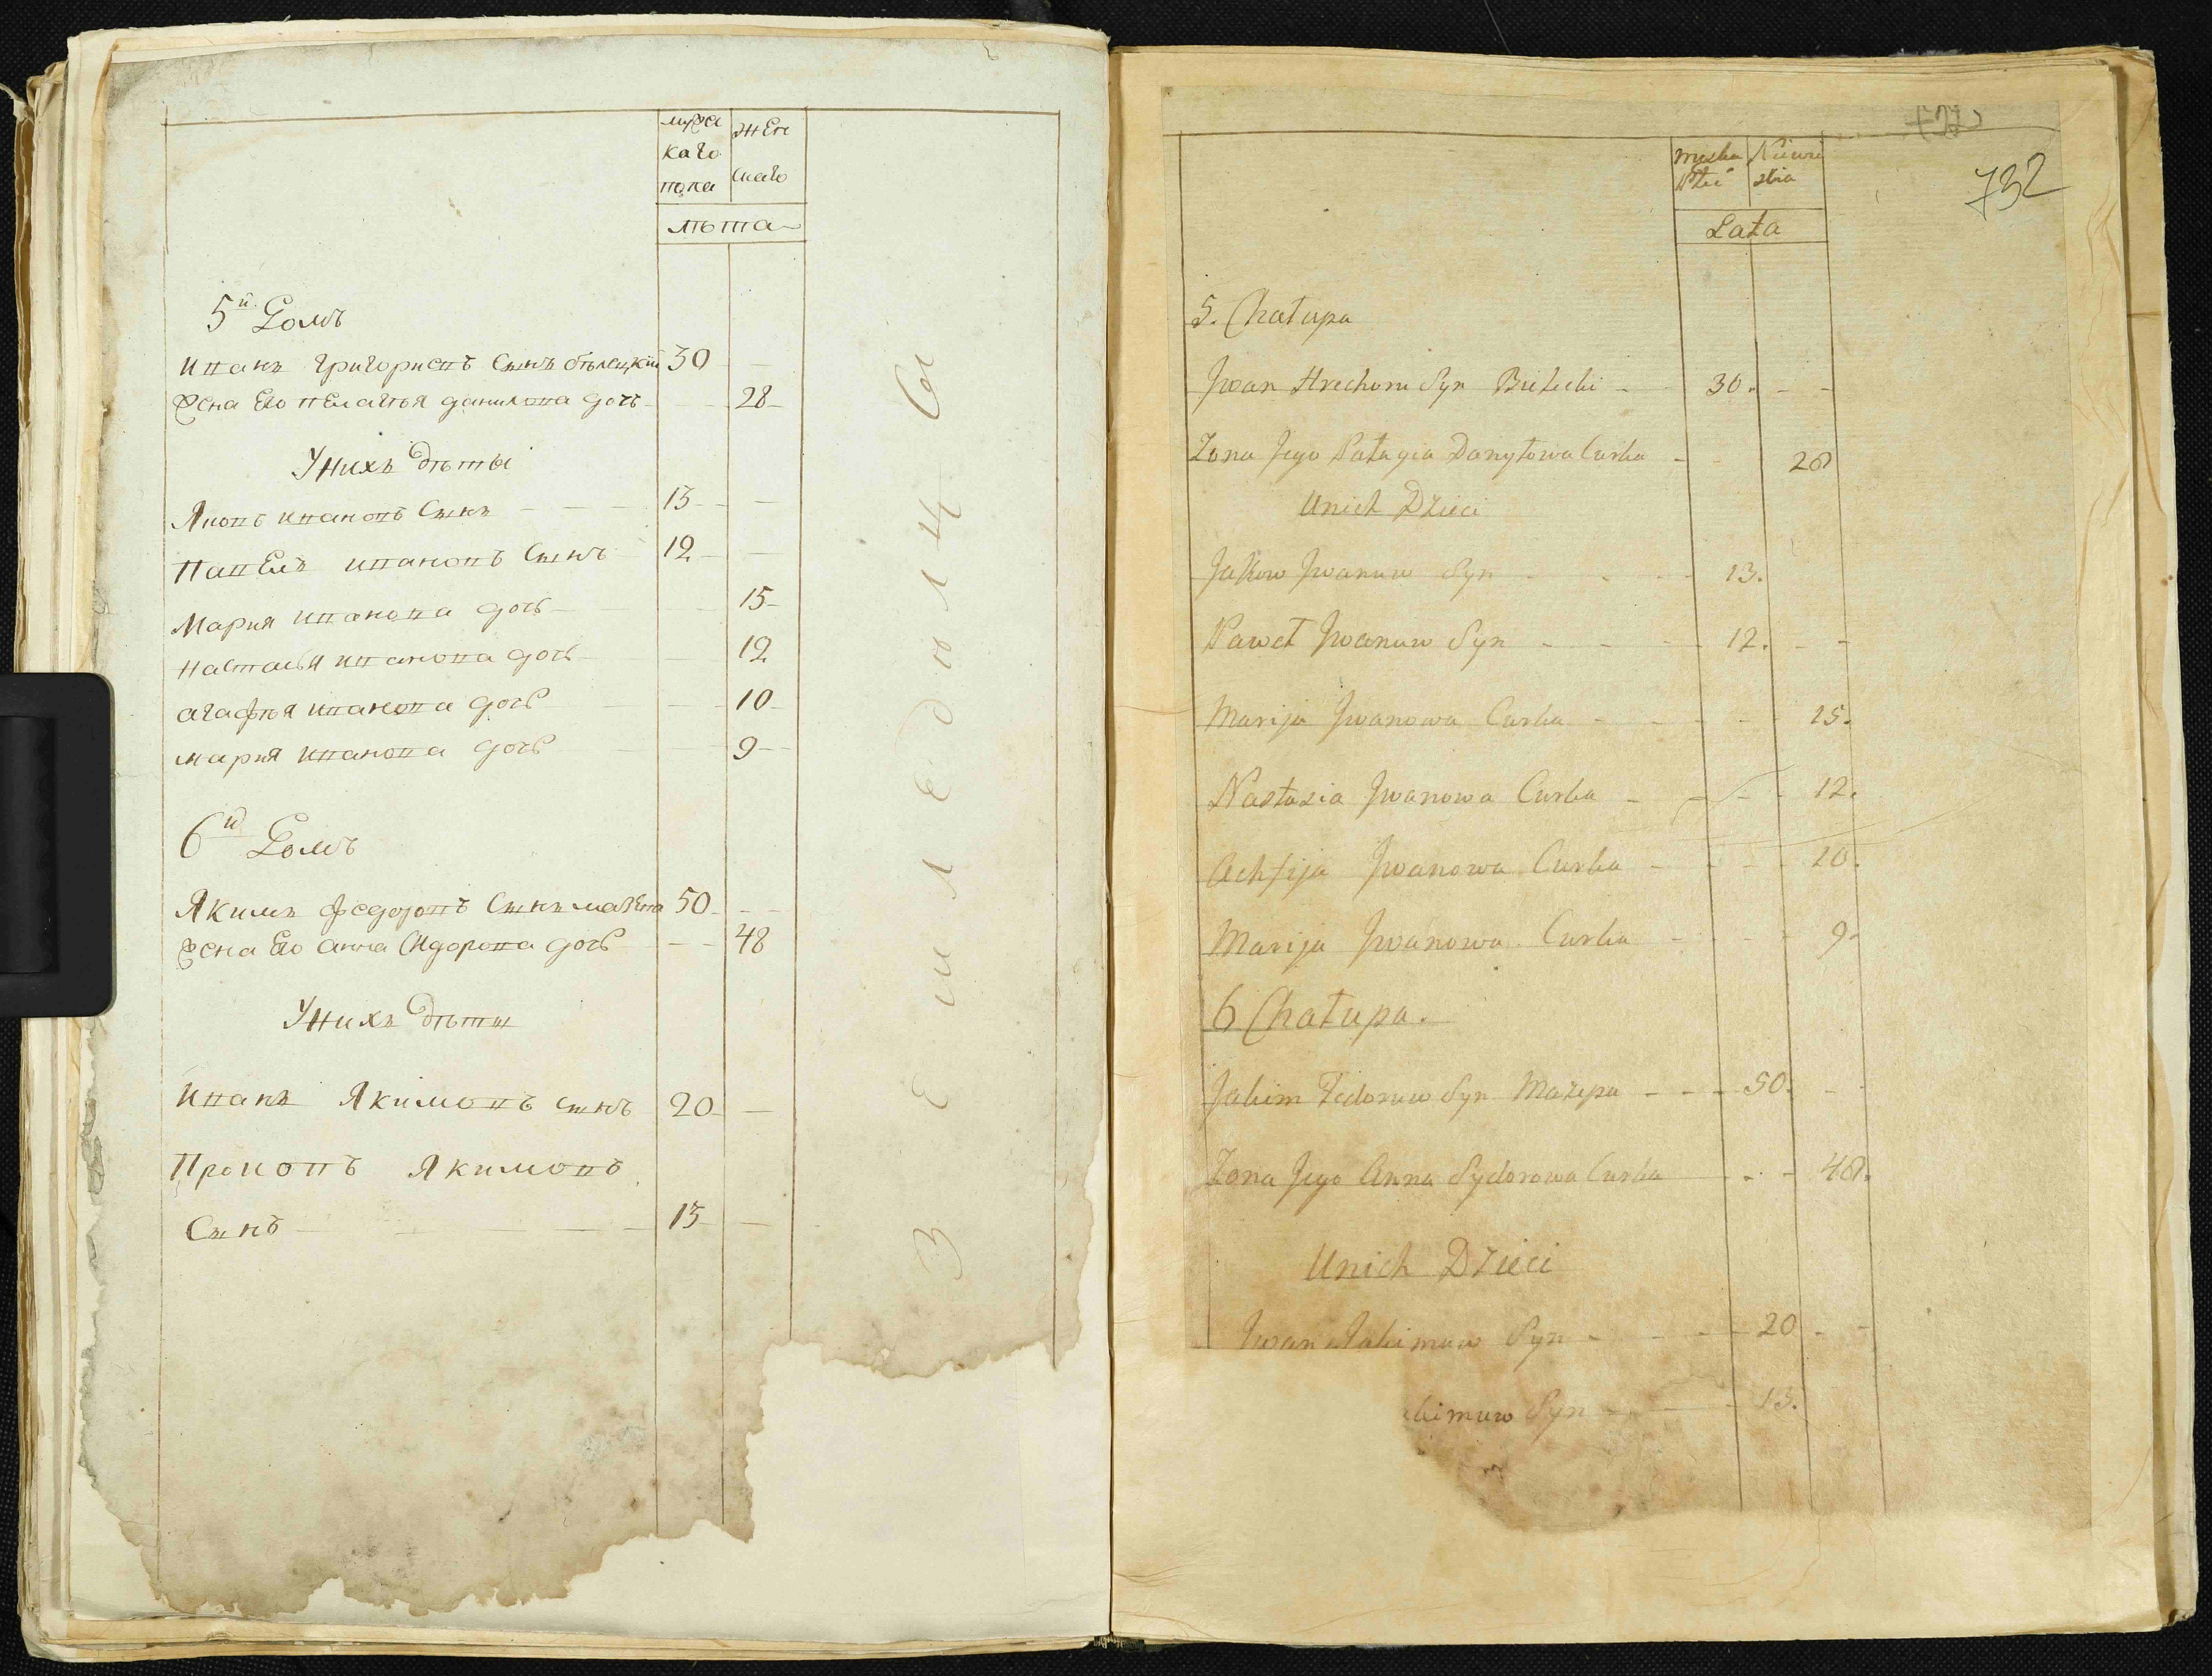 мужс
каго
пола
жен
скаго
лѣта
5й Домъ
иванъ григориевъ Сынъ бѣлецкий 30
Жена Его пелагѣя данилова дочь 28
У нихъ дѣты
Яковъ ивановъ Сынъ 13
Павелъ ивановъ Сынъ 12
Мария иванова дочь 15
настасья иванова дочь 12
агафья иванова дочь 10
мария иванова дочь 9
6й Домъ
Якимъ федоровъ Сынъ мазепа 50
Жена Его анна Сидорова дочь 48
У нихъ дѣты
иванъ Якимовъ сынъ 20
Прокопъ Якимовъ
Сынъ 13
З е м л е д ѣ л ц ы
732
Męska
Płeć
Niewie
scia
Lata
5. Chałupa
Jwan Hrechoruw Syn Bielecki 30.
Żona Jego Pałagia Danyłowa Curka 28
U nich Dzieci
Jakow Jwanuw Syn 13.
Paweł Jwanuw Syn 12.
Marija Jwanowa Curka 15.
Nastasia Jwanowa Curka 12.
Achfija Jwanowa Curka 10.
Marija Jwanowa Curka 9.
6 Chałupa.
Jakim Fedoruw Syn Mazepa 50.
Żona Jego Anna Sydorowa Curka 48.
U nich Dzieci
Jwan Jakimuw Syn 20
kimuw Syn 13.